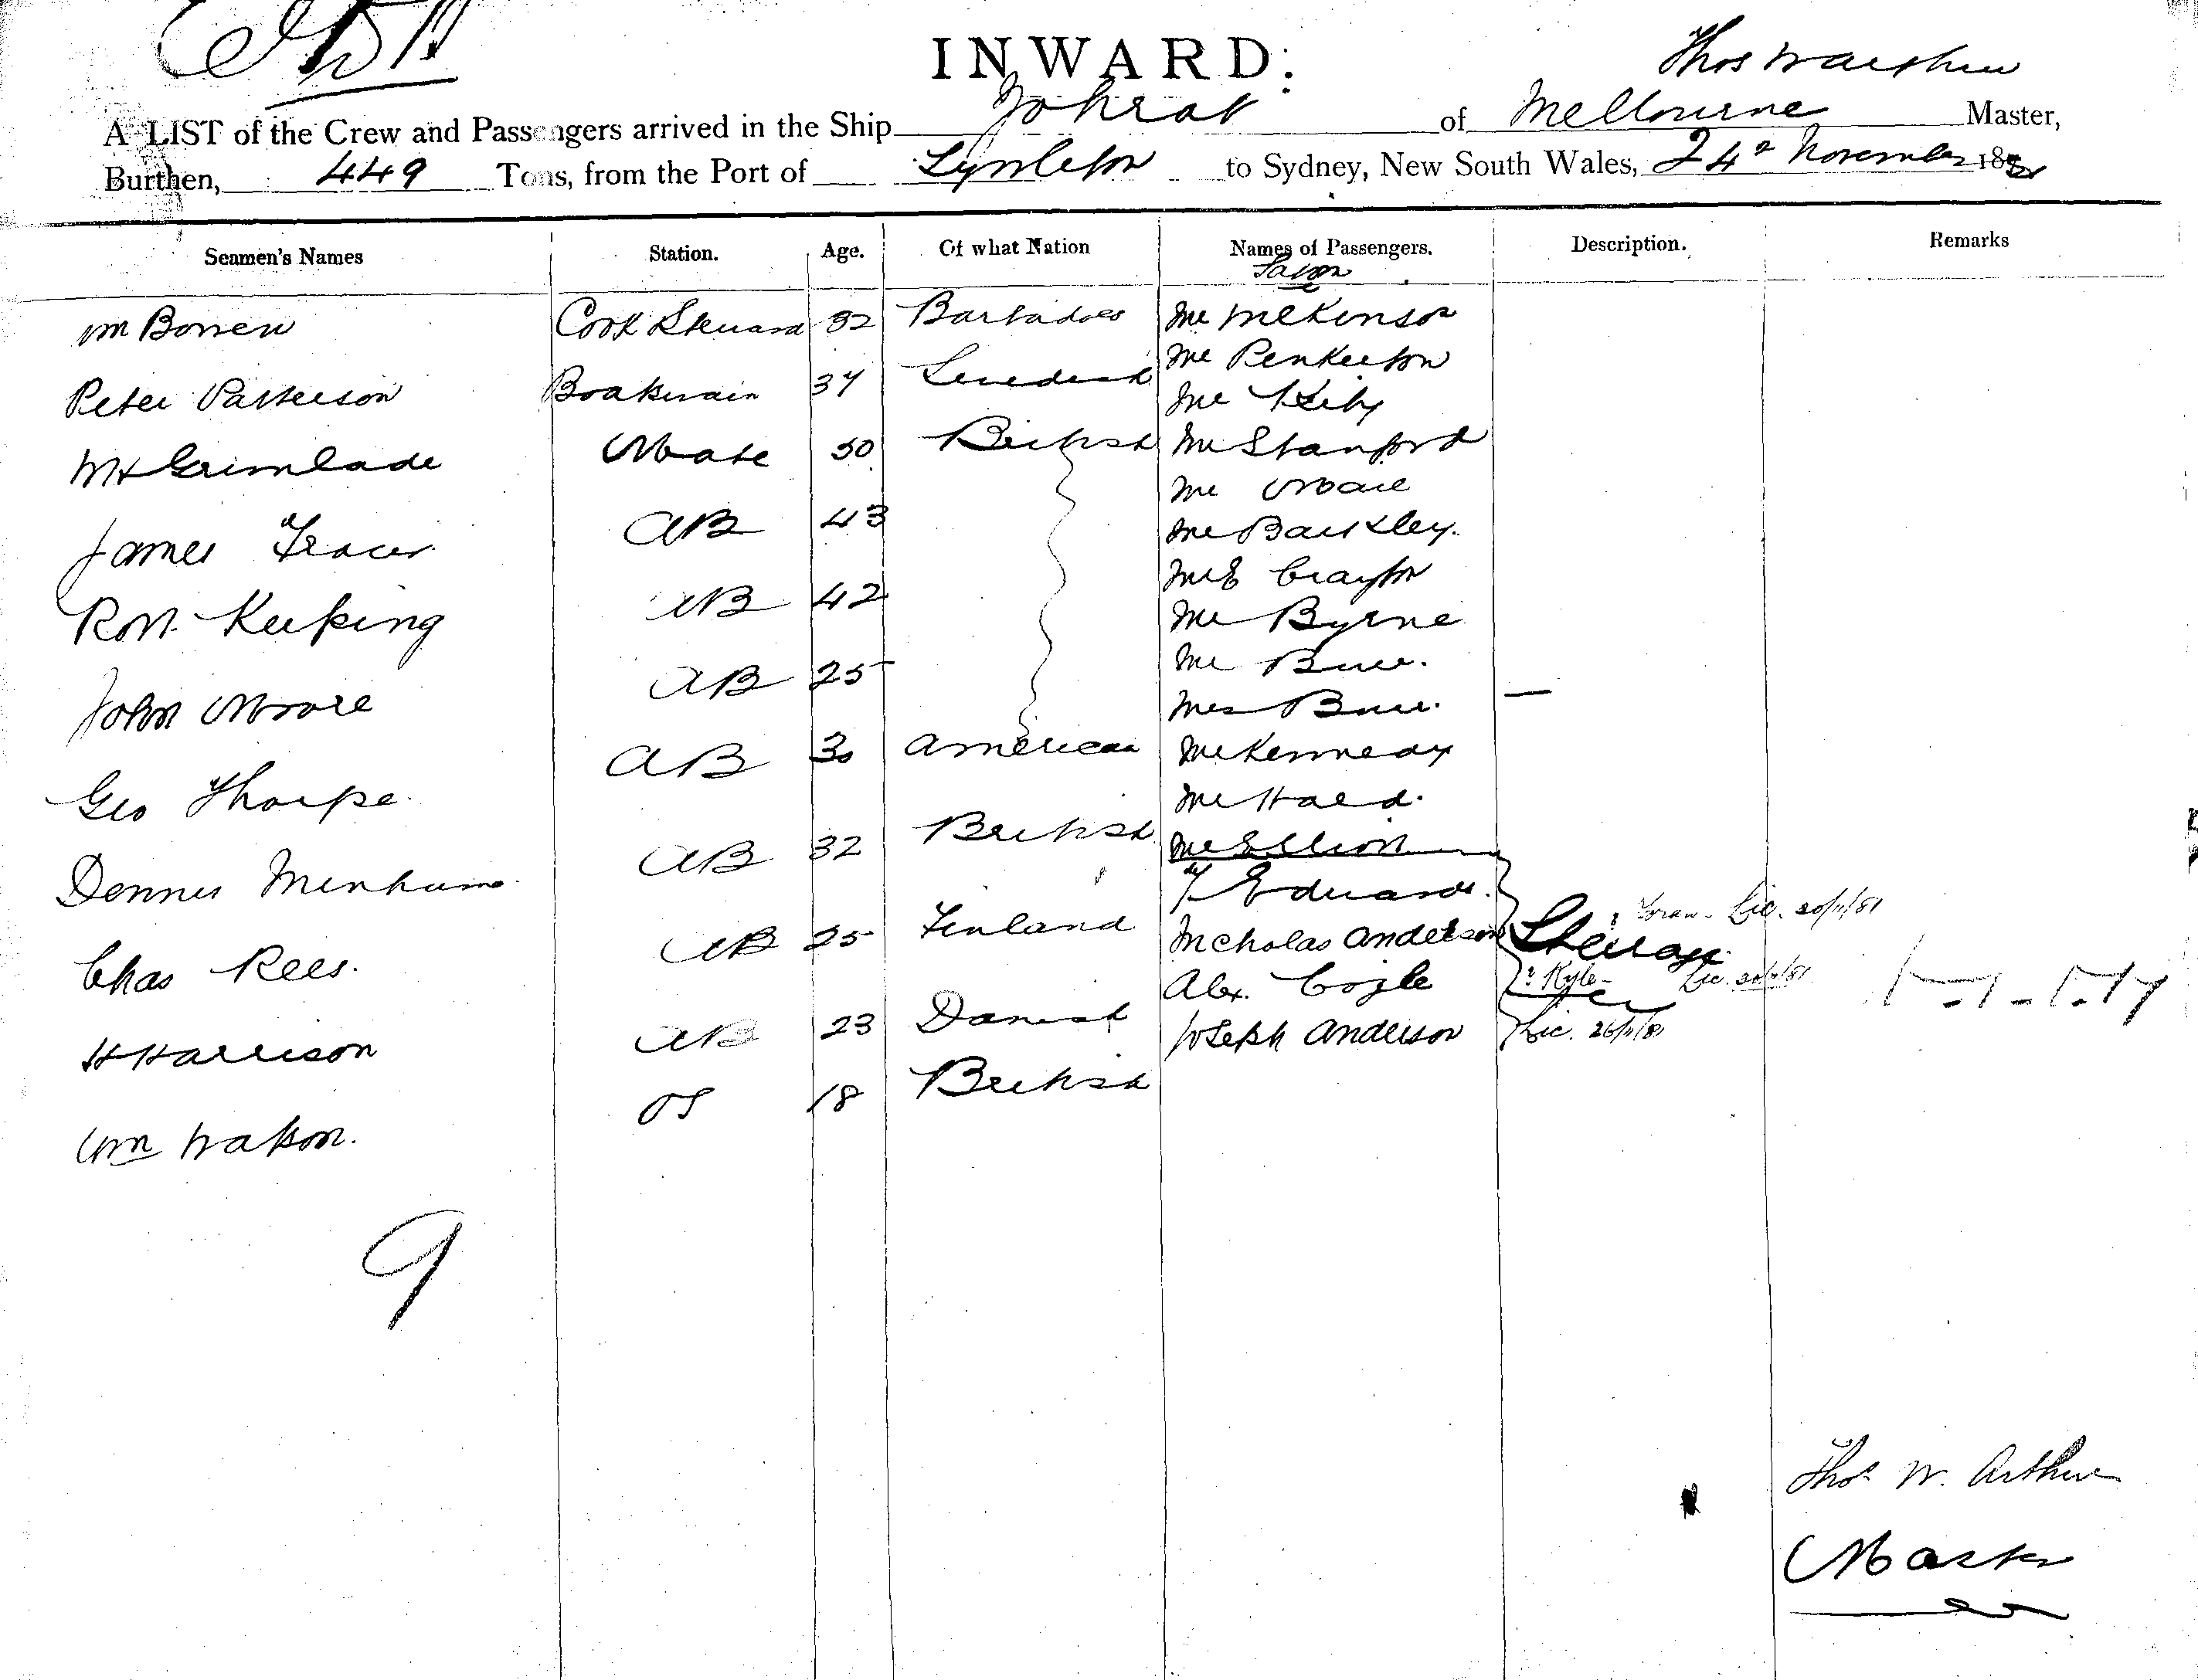 INWARD:
Thos W Arthur
A LIST of the Crew and Passengers arrived in the Ship Zohrab of Melbourne Master,
Burthen, 449 Tons, from the Port of Lyttleton to Sydney, New South Wales, 24th November 1881
Seamen's Names Station. Age. Of what Nation Names of Passengers. Description. Remarks
Saloon
Wm Bowen Cook Steward 32 Barbadoes Mr McKinson
Mr Penkerton
Peter Patterson Boatswain 37 Swedish Mr Kiby
Wm Grimlade Mate 50 British Mr Stanford
Mr
James AB 43 Mr Barkley.
Mr E Crayton
Robt. Keeping AB 42 Mr Byrne
John Moore AB 25 Mr Burr.
Mrs Burr.
Geo Thorpe. AB 30 American Mr Kennedy
Mr Hard.
Dennis AB 32 British Mr Ellison
T Edwards.
Lic. 20/11/81
Chas Rees. AB 25 Finland Nicholas Anderson Steerage
Alex. Coyle ? Kyle - Lic. 20/11/81
H Harrison AB 23 Danish Joseph Anderson Lic. 26/11/81
Wm Watson. OS 18 British
9
Thos W. Arthur
Master